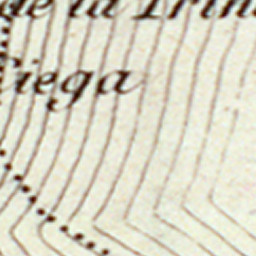 de la Trin
Ciega